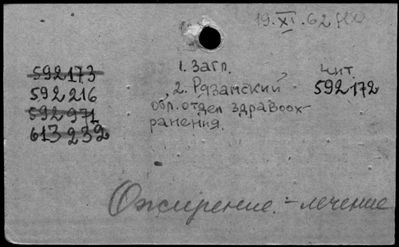 19.XI.62
592173
592216
592971
613232
1. Загл.
„2. Рязанский
обл. отдел здравоох-
ранения.
чит.
592172
Ожирение. - лечение